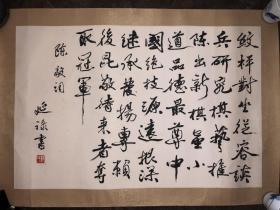 紋枰對坐從容談
兵研究棋藝推
陳出新棋虽小
道品德最尊中
國絶技源遠根深
继承發揚專賴
後昆敬待来者奪
取冠軍
陳毅詞
書